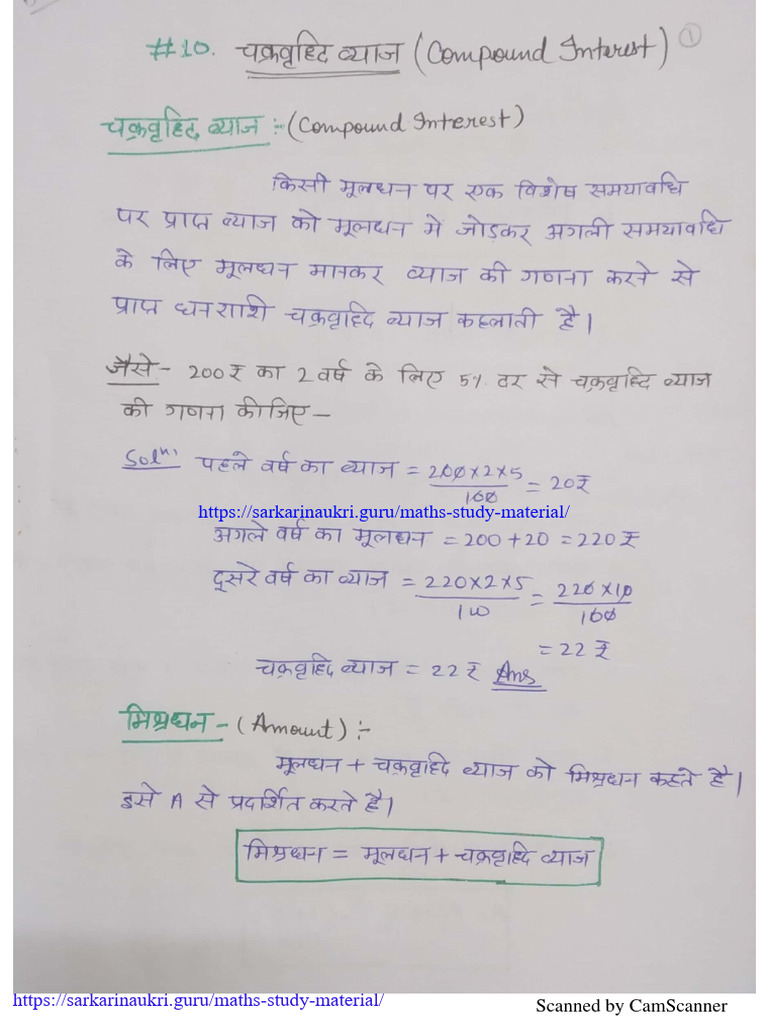 #10. चक्रवृद्धि ब्याज (Compound Interest) 1
चक्रवृद्धि ब्याज :- (Compound Interest)
किसी मूलधन पर एक विशेष समयावधि
पर प्राप्त ब्याज को मूलधन मे जोड़कर अगली समयावधि
के लिए मूलधन मानकर ब्याज की गणना करने से
प्राप्त धनराशि चक्रवृद्धि ब्याज कहलाती है।
जैसे - 200₹ का 2 वर्ष के लिए 5% दर से चक्रवृद्धि ब्याज
की गणना कीजिए -
Solⁿ: पहले वर्ष का ब्याज = 200×2×5/100 = 20₹
https://sarkarinaukri.guru/maths-study-material/
अगले वर्ष का मूलधन = 200 + 20 = 220₹
दूसरे वर्ष का ब्याज = 220×2×5/100 = 220×10/100
= 22₹
चक्रवृद्धि ब्याज = 22₹ Ans
मिश्रधन - (Amount) :-
मूलधन + चक्रवृद्धि ब्याज को मिश्रधन कहते है।
इसे A से प्रदर्शित करते है।
मिश्रधन = मूलधन + चक्रवृद्धि ब्याज
https://sarkarinaukri.guru/maths-study-material/
Scanned by CamScanner